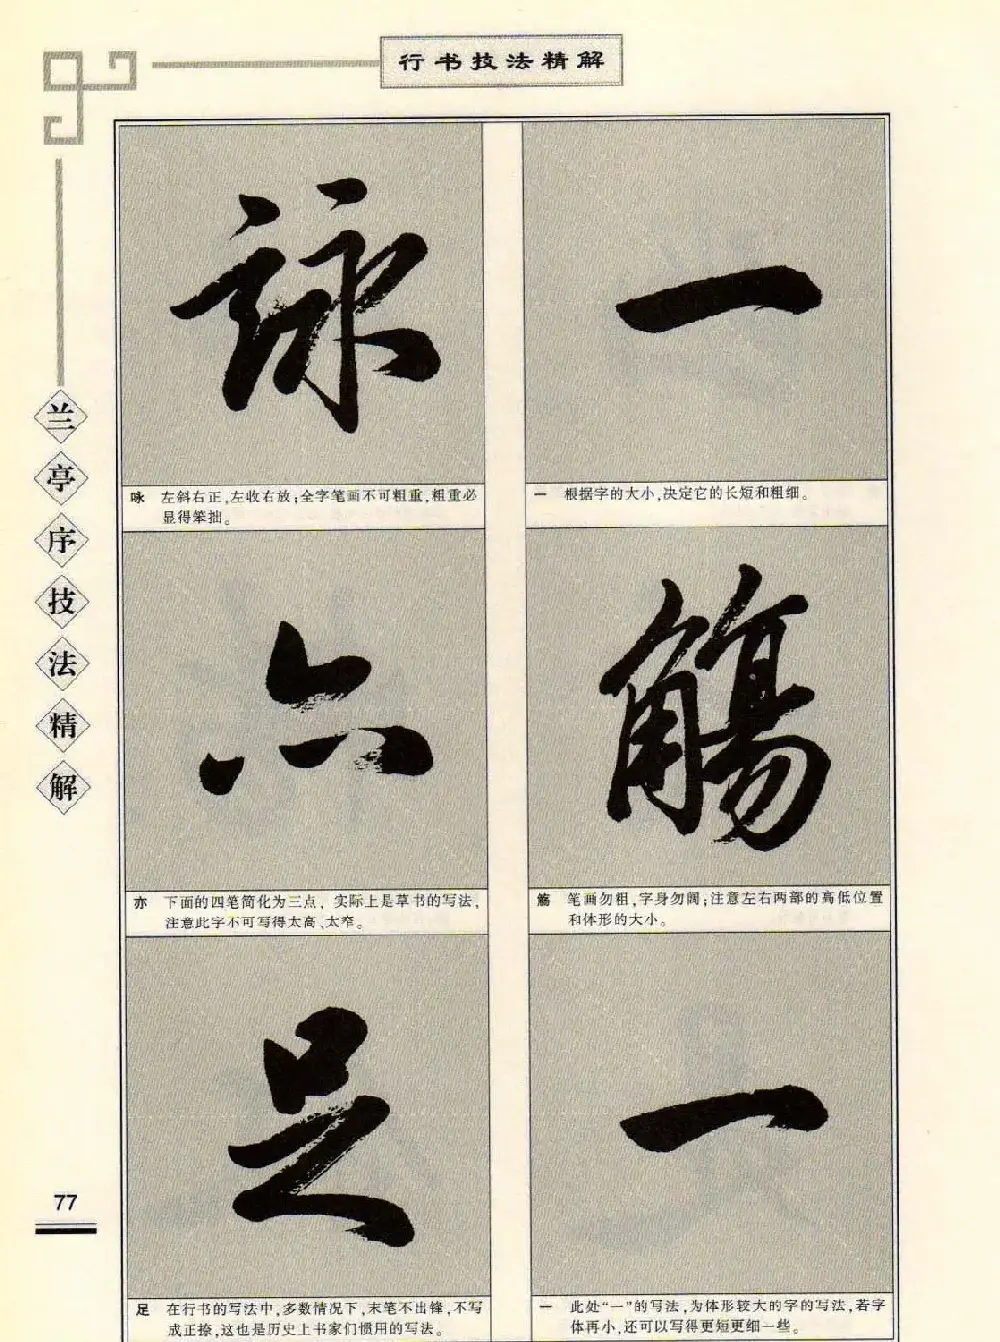 行书技法精解
兰亭序技法精解
一
一 根据字的大小,决定它的长短和粗细。
觴
觞 笔画勿粗,字身勿阔;注意左右两部的高低位置
和体形的大小。
一
一 此处“一”的写法,为体形较大的字的写法,若字
体再小,还可以写得更短更细一些。
詠
咏 左斜右正,左收右放;全字笔画不可粗重,粗重必
显得笨拙。
亦
亦 下面的四笔简化为三点,实际上是草书的写法,
注意此字不可写得太高、太窄。
足
足 在行书的写法中,多数情况下,末笔不出锋,不写
成正捺,这也是历史上书家们惯用的写法。
77